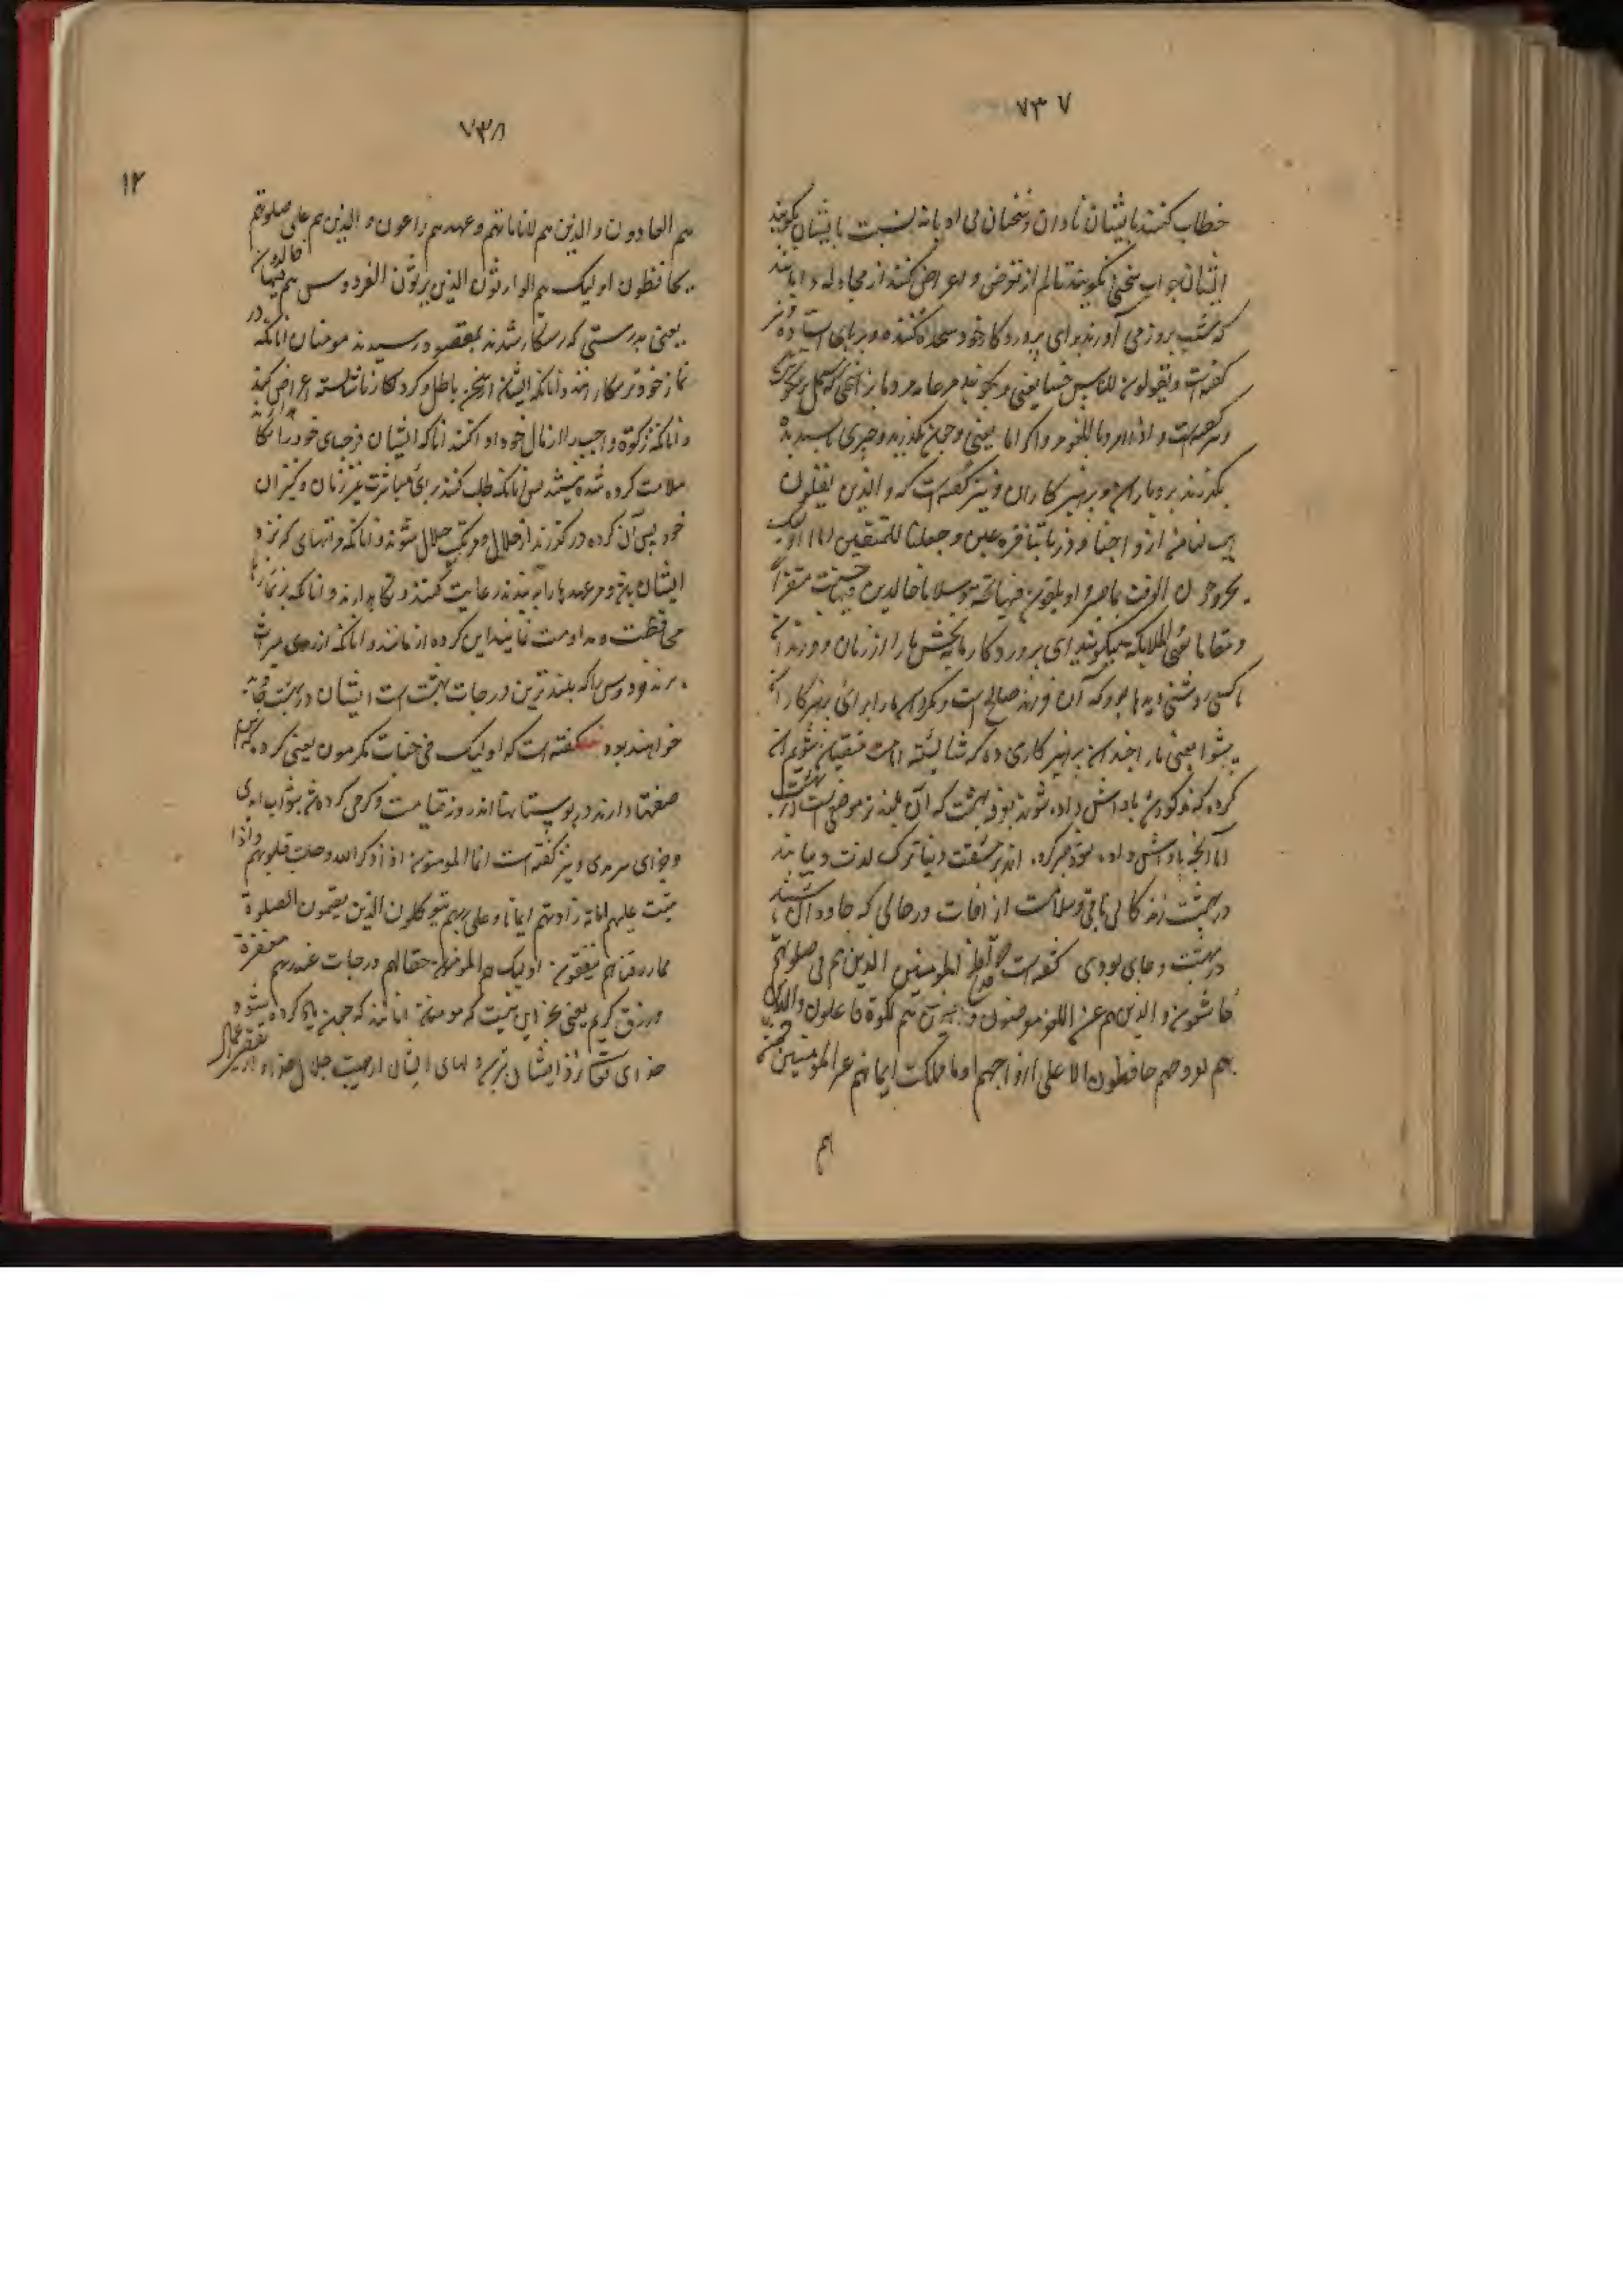 ۷۳۷
خطاب کنند بایشان نادان و سخنان بی ادبانه نسبت بایشان بگویند
ایشان جواب سخنی نگویند سالم از تعرض و اعراض کنند از مجادله و
که شب بروز می آورند برای پروردگار خود سجده کننده و بر پای استاده و نیز
گفته است و یقولون للناس حسنا یعنی و بگویند مر عامه مردمان را سخنی که
و اذا مروا باللغو مروا کراما یعنی و چون بگذرند بچیزی ناپسندیده
بگذرند بردباران و پرهیزکاران و نیز گفته است که و الذین یقولون
هب لنا من ازواجنا و ذریاتنا قرة عین و جعلنا للمتقین اماما اولیک
یجزون الغرفت بما صبروا و یلقون فیها تحیة و سلاما خالدین فیها حسنت مستقرا
و مقاما یعنی میگویند ای پروردگار ما ببخش ما را از زنان و فرزندان
ما کسی روشنی دیدها بود که آن فرزند صالح است و بگردان ما را برای پرهیزکاران
پیشوا یعنی ما را چندان پرهیزکاری ده که شایسته امامت متقیان شویم این
گروه که مذکور شد پاداش داده شوند بغرفه بهشت که آن بلندتر موضعی است در بهشت
اما آنچه پاداش داده شود صبر کردن اندر مشقت دنیا و ترک لذت و بیابند
در بهشت زندگانی باقی و سلامت از افات در حالی که جاودان باشند
در بهشت و جای بودی گفته است قد افلح المومنین الذین هم فی صلوتهم
خاشعون و الذین هم عن اللغو معرضون و الذین هم للزکوة فاعلون و الذین
هم لفروجهم حافظون الا علی ازواجهم او ما ملکت ایمانهم غیر المومنین
هم
۷۳۸
۱۲
هم العادون و الذین هم لاماناتهم و عهدهم راعون و الذین هم علی صلوتهم
یحافظون اولیک هم الوارثون الذین یرثون الفردوس هم فیها خالدون
یعنی بدرستی که رستگار شدند و بمقصود رسیدند مومنان انانکه در
نماز خود ترسکارانند و انانکه ایشان از سخن باطل و کردار ناشایسته اعراض کنند
و انانکه زکوة واجب را از مال خود ادا کنند انانکه ایشان فرجهای خود را نگاه دارند
ملامت کرده شده نیستند پس انانکه طلب کنند برای مباشرت غیر زنان و کنیزان
خود پس آن گروه درگذرند از حلال و مرتکب حلال شوند و انانکه امانتهای که نزد
ایشان باشد و مر عهدها را رعایت کنند و نگاه دارند و انانکه بر نمازها
محافظت و مداومت نمایند این گروه از مانند و انانکه از روی میراث
برند فردوس را که بلندترین درجات بهشت است ایشان در بهشت جاوید
خواهند بود گفته است که اولیک فی جنات مکرمون یعنی گروه که این
صفتها دارند در بوستانها اندر روز قیامت و گرامی کرده شده بثواب ابدی
و جزای سرمدی و نیز گفته است انما المومنون اذا ذکر الله وجلت قلوبهم و اذا
تلیت علیهم ایاته زادتهم ایمانا و علی ربهم یتوکلون الذین یقیمون الصلوة
مما رزقناهم ینفقون اولیک هم المومنون حقا لهم درجات عند ربهم مغفرة
و رزق کریم یعنی جز این نیست که مومنان انانند که چون یاد کرده شود
خدای تعالی نزد ایشان بترسد دلهای ایشان از هیبت جلال خداوند